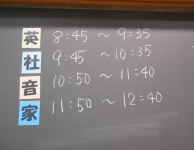 英 8:45 ～ 9:35
社 9:45 ～ 10:35
音 10:50 ～ 11:40
家 11:50 ～ 12:40